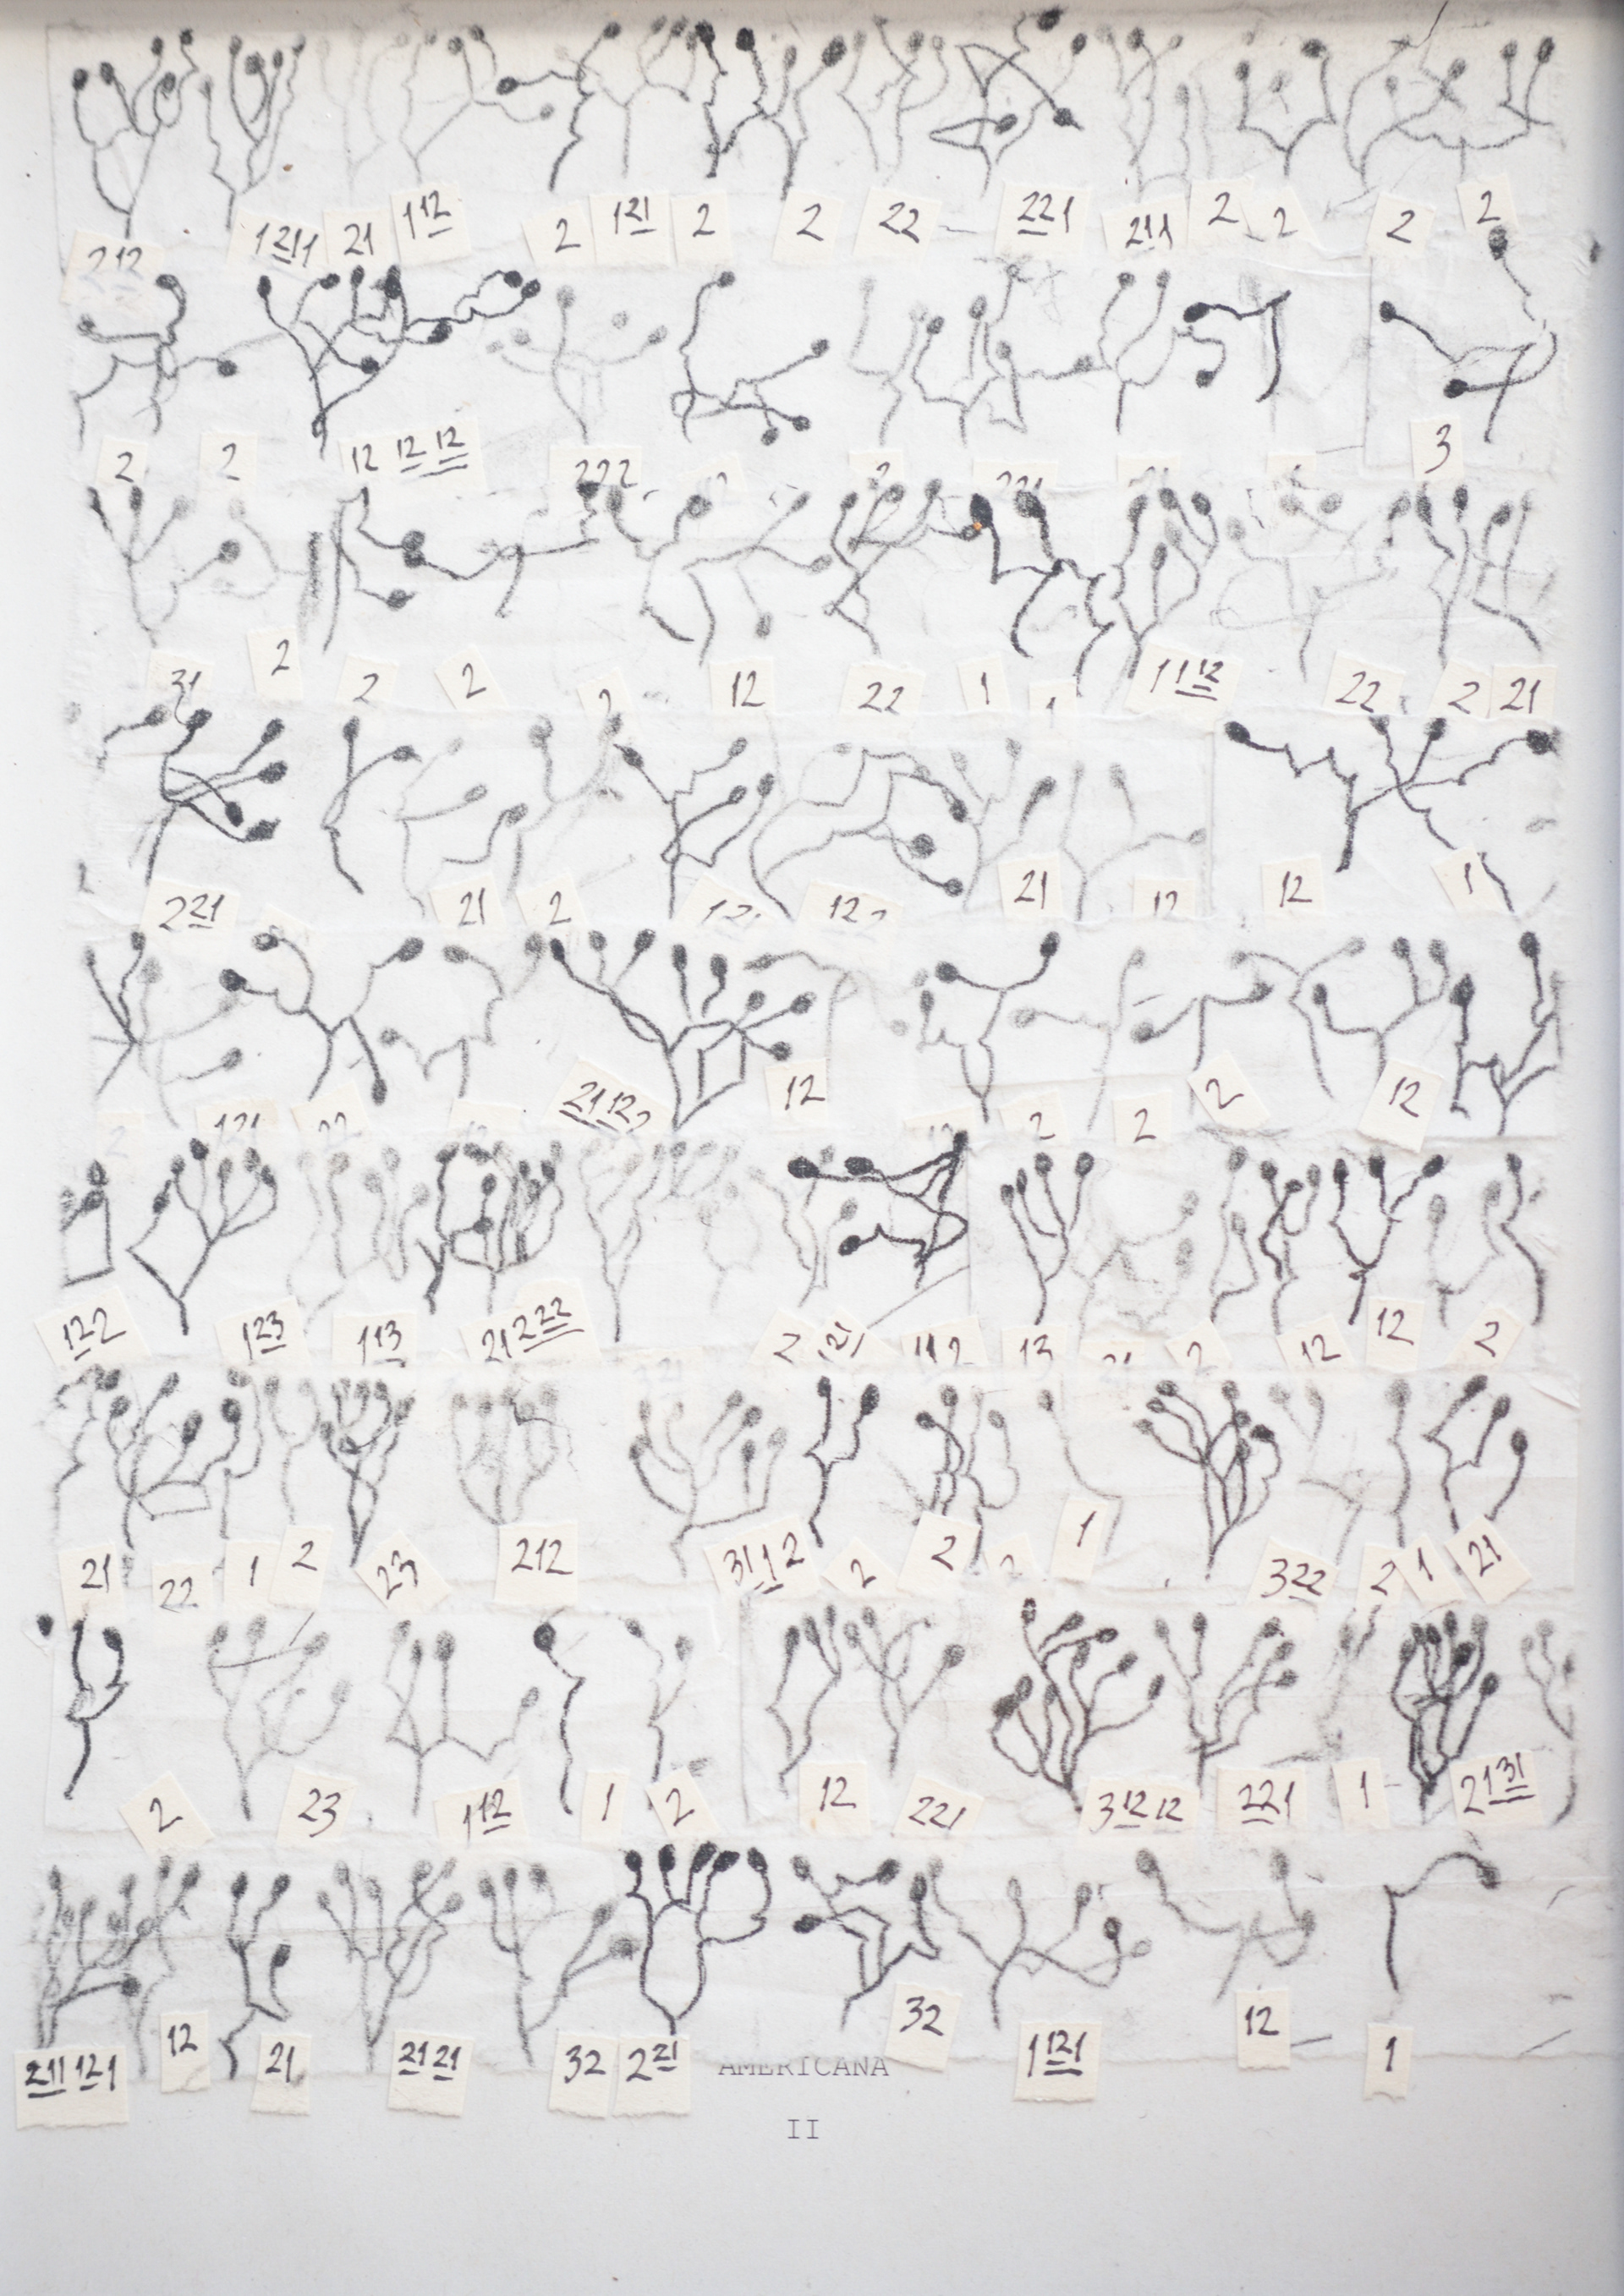 212 1211 21 112 2 121 2 2 22 221 211 2 2 2 2
2 2 12 12 12 222 3
31 2 2 2 2 12 22 1 1 1112 22 2 21
221 21 2 12 21 12 12 1
12 2 2 2 12
122 123 113 21222 2 12 12 2 12 12 2
21 22 1 2 23 212 3112 2 2 2 1 322 2 1 21
2 23 112 1 2 12 221 31212 221 1 2131
211 121 12 21 2121 32 221 32 1121 12 1
AMERICANA
II